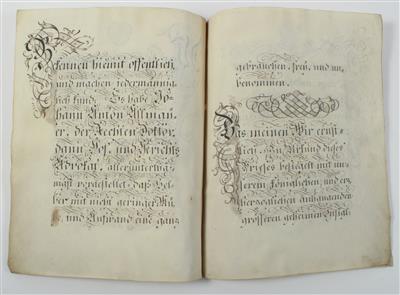 Bekennen hiemit offentlich,
und machen Jedermänig=
lich kund. Es habe Jo=
hann Anton
er, der Rechten Doktor,
dann Hof- und Gerichts
Advokat, allerunterthä=
nigst vorgestellet, daß Sel=
ber mit nicht geringer Mü=
he, und Aufwand eine ganz
gebrauchen, frey, und un=
benommen.
Das meinen Wir ernst=
lich. Zu Urkund dieses
Briefes besiegelt mit un=
serem Königlichen, und erz=
herzoglichen Anhangenden
grösseren geheimen Insigl,